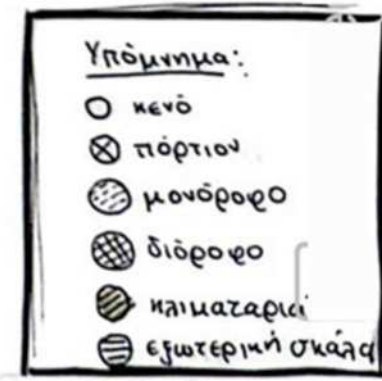 Υπόμνημα:
κενό
πόρτιον
μονόροφο
διόροφο
κλιματαριά
εξωτερική σκάλα